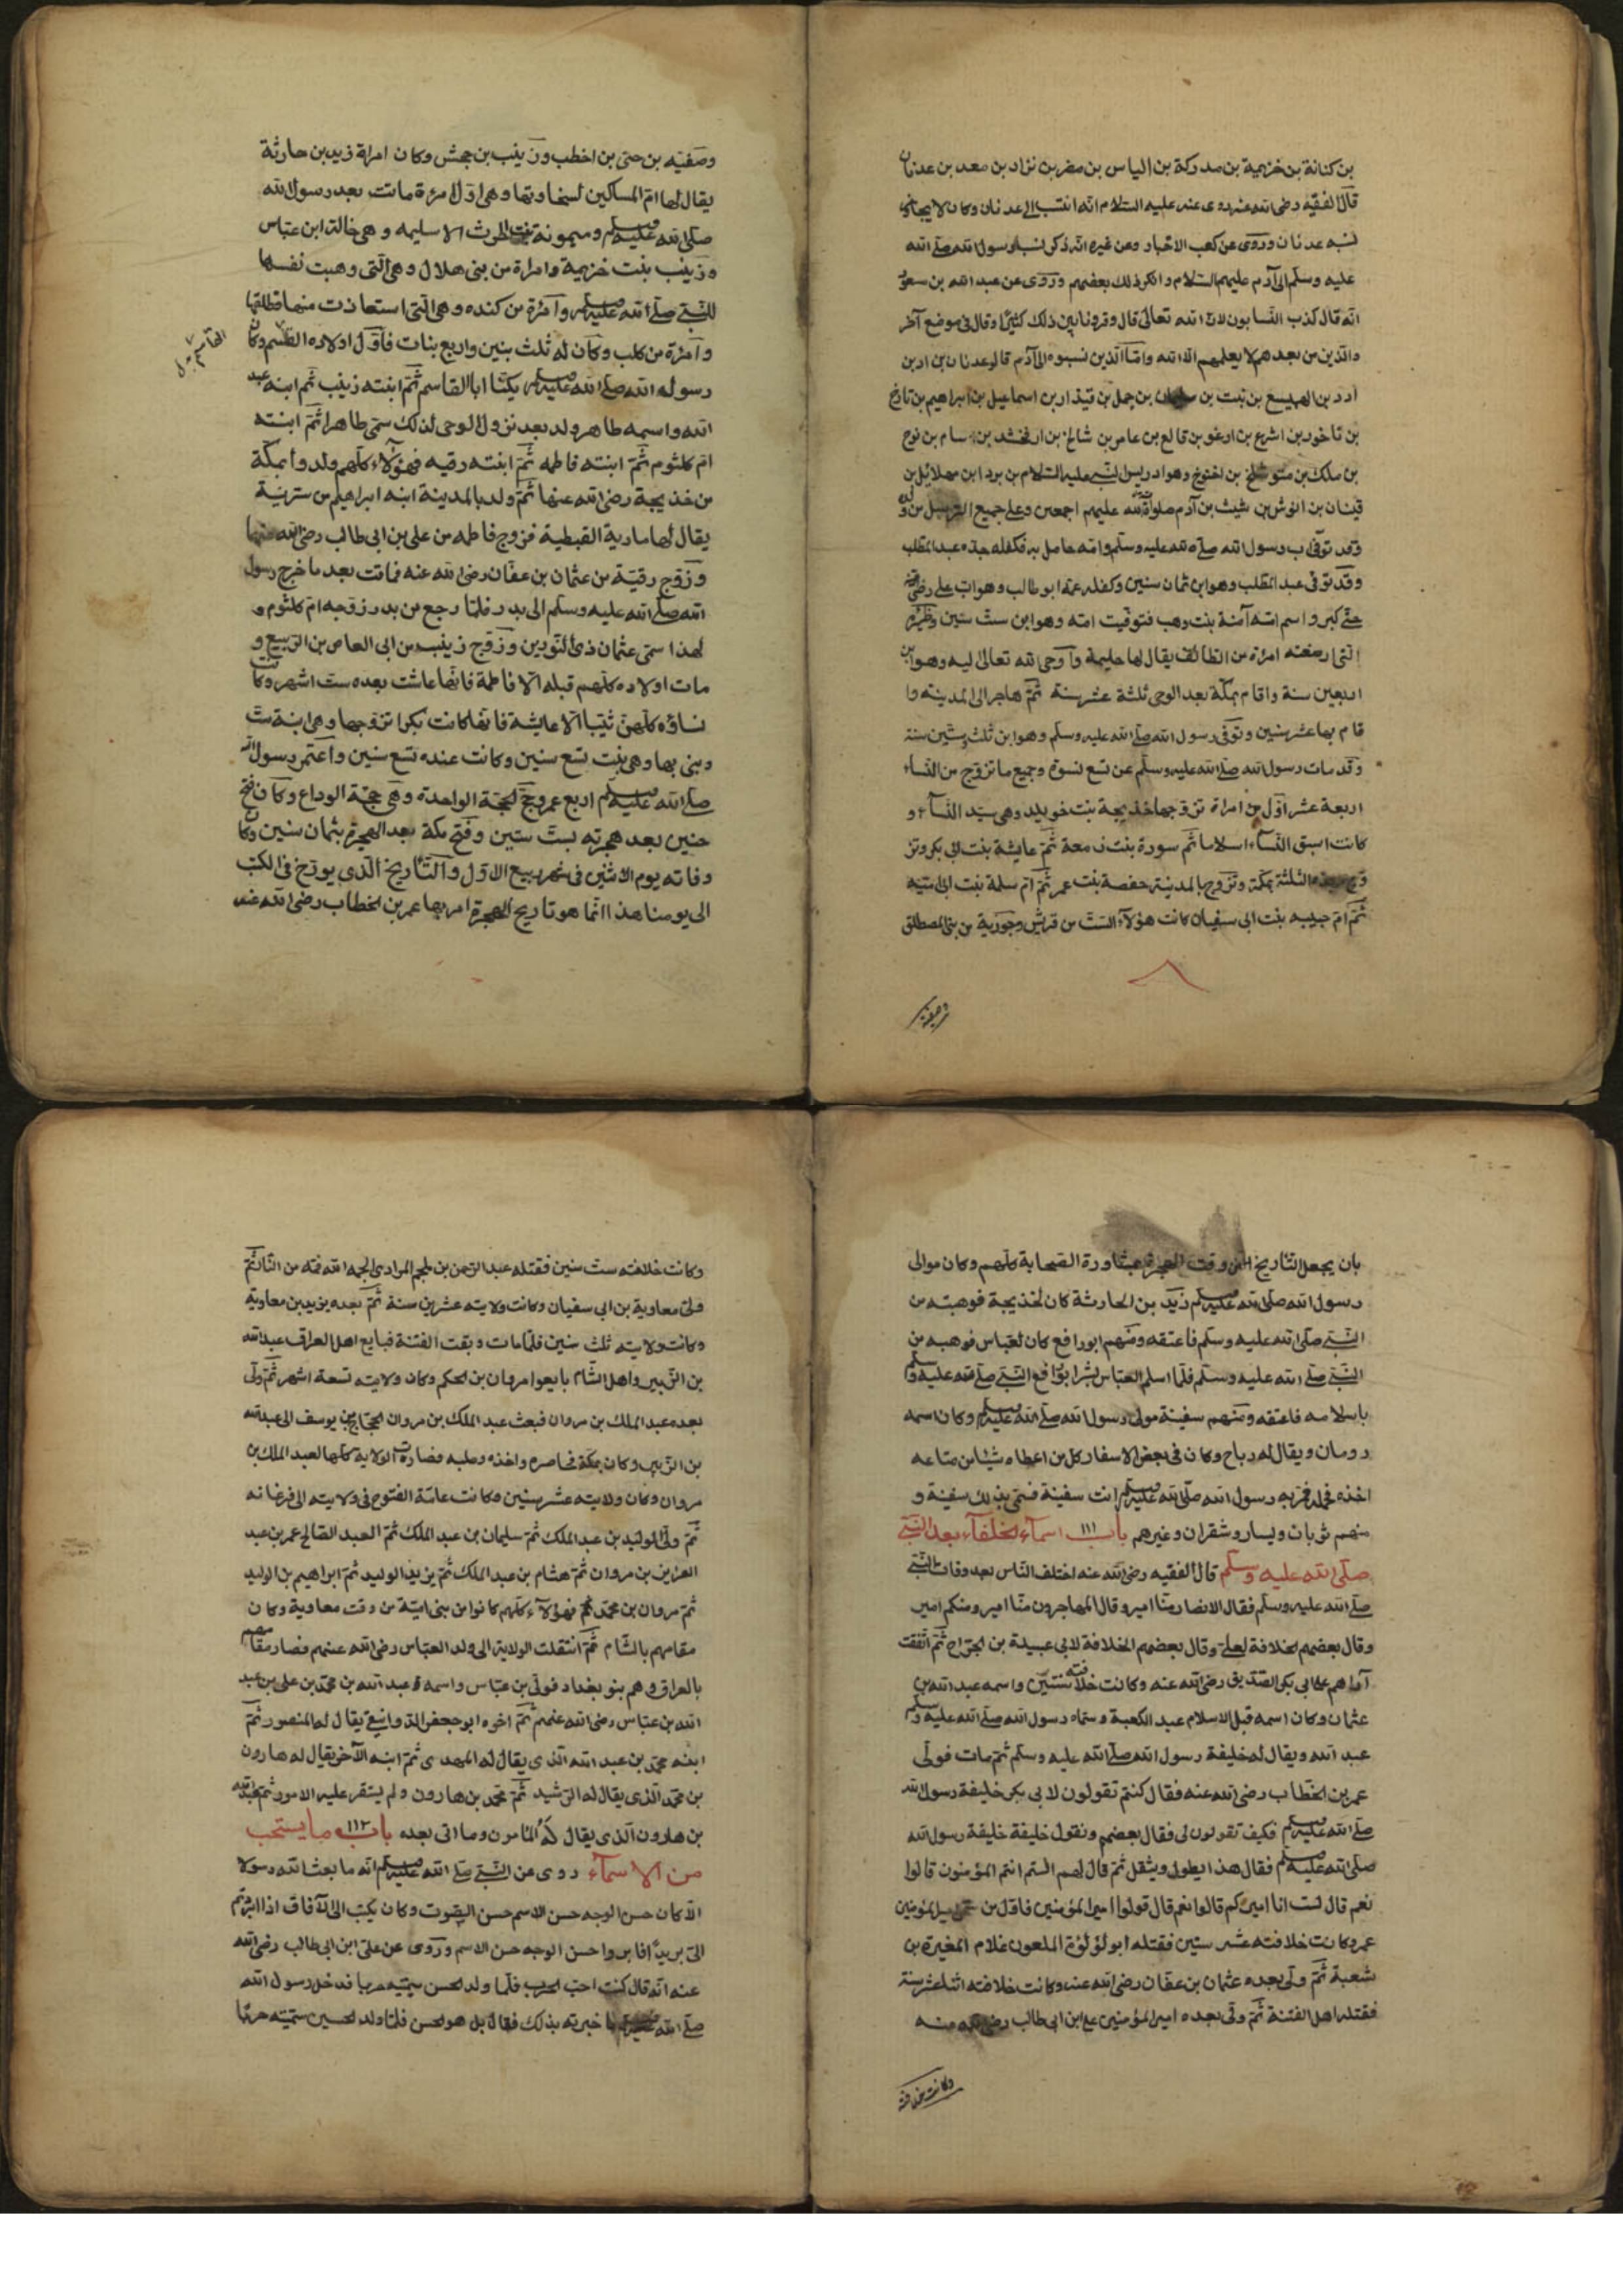 بن كنانة بن خزيمة بن مدركة بن الياس بن مضر بن نزار بن معد بن عدنان
قال الفقيه رضى الله عنه روى عنه عليه السلام انه انتسب الى عدنان وكان لا يجاوز
نسبه عدنان وروى عن كعب الاخبار وعن غيره انه ذكر نسب رسول الله صلى الله
عليه وسلم الى آدم عليهم السلام وانكر ذلك بعضهم وروى عن عبد الله بن مسعود
انه قال كذب النسابون لان الله تعالى قال وقرونا بين ذلك كثيرا وقال فى موضع آخر
والذين من بعدهم لا يعلمهم الا الله واما الذين نسبوه الى آدم قالوا عدنان بن ادبن
ادد بن الهميسع بن نبت بن بن حمل بن قيذار بن اسماعيل بن ابراهيم بن تارخ
بن ناخور بن اشرع بن ارغو بن قالع بن عامر بن شالخ بن ارفخشد بن سام بن نوح
بن ملك بن متوشلخ بن اخنوخ وهو ادريس النبى عليه السلام بن برد ابن مهلائل بن
قينان بن انوش بن شيث بن آدم صلوات الله عليهم اجمعين وعلى جميع المرسلين
وقد توفى اب رسول الله صلى الله عليه وسلم وامه حامل به فكفله جده عبد المطلب
وقد توفى عبد المطلب وهو ابن ثمان سنين وكفله عمه ابو طالب وهو اب على رضى الله عنه
حتى كبر واسم امه آمنة بنت وهب فتوفيت امه وهو ابن ست سنين وظئره
التى ارضعته امرئة من الطائف يقال لها حليمة واوحى الله تعالى اليه وهو ابن
اربعين سنة واقام بمكة بعد الوحى ثلثة عشر سنة ثم هاجر الى المدينه وا
قام بها عشر سنين وتوفى رسول الله صلى الله عليه وسلم وهو ابن ثلث وستين سنة
وقد مات رسول الله صلى الله عليه وسلم عن تسع نسوة وجميع ما تزوج من النساء
اربعة عشر اول من امراة تزوجها خذيجة بنت خويلد وهى سيد النساء و
كانت اسبق النساء اسلاما ثم سورة بنت زمعة ثم عايشة بنت ابى بكر وتز
وج هذه الثلثة بمكة وتزوج بالمدينة حفصة بنت عمر ثم ام سلمة بنت ابى اميه
ثم ام حبيبه بنت ابى سفيان كانت هؤلاء الست من قريش وجورية من بنى المصطلق
وصفيه
وصفيه بن حتى بن اخطب وزينب بن جحش وكان امراة زيد بن حارثة
يقال لها ام المساكين لسخاوتها وهى اول امرئة ماتت بعد رسول الله
صلى الله عليه وسلم وميمونة بنت الحرث الاسليمه وهى خالة ابن عباس
وزينب بنت خزيمة وامراة من بنى هلال وهى التى وهبت نفسها
للنبى صلى الله عليه وسلم وامرئة من كنده وهى التى استعاذت منها فطلقها
وامرئة من كلب وكان له ثلث بنين واربع بنات فاول اولاده القاسم وكان
رسوله الله صلى الله عليه وسلم يكنا ابا القاسم ثم ابنته زينب ثم ابنه عبد
الله واسمه طاهر ولد بعد نزول الوحى لذلك سمى طاهرا ثم ابنته
ام كلثوم ثم ابنته فاطمه ثم ابنته رقيه فهؤلاء كلهم ولدوا بمكة
من خذيجة رضى الله عنها ثم ولد بالمدينة ابنه ابراهيم من سترية
يقال لها مارية القبطية فزوج فاطمه من على بن ابى طالب رضى الله عنها
وزوج رقية من عثمان بن عفان رضى الله عنه فماتت بعد ما خرج رسول
الله صلى الله عليه وسلم الى بدر فلما رجع من بدر زوجه ام كلثوم و
لهذا سمى عثمان ذى النورين وزوج زينب من ابى العاص بن الربيع و
مات اولاده كلهم قبله الا فاطمة فانها عاشت بعده ست اشهر وكانت
نساؤه كلهن ثيبا الا عايشة فانها كانت بكرا تزوجها وهى ابنة ست
وبنى بها وهى بنت تسع سنين وكانت عنده تسع سنين واعتمر رسول الله
صلى الله عليه وسلم اربع عمر وحج الحجة الواحدة وهى حجة الوداع وكان فتح
حنين بعد هجرته بست سنين وفتح مكة بعد الهجرة بثمان سنين وكان
وفاته يوم الاثنين فى شهر ربيع الاول والتاريخ الذى يورخ فى الكتب
الى يومنا هذا انما هو تاريخ الهجرة امر بها عمر بن الخطاب رضى الله عنه
بان يجعل التاريخ من وقت الهجرة بمشاورة الصحابة كلهم وكان موالى
رسول الله صلى الله عليه وسلم زيد بن الحارثة كان لخذيجة فوهبته من
النبى صلى الله عليه وسلم فاعتقه ومنهم ابو رافع كان لعباس فوهبه من
النبى صلى الله عليه وسلم فلما اسلم العباس بشر ابو رافع النبى صلى الله عليه وسلم
باسلامه فاعتقه ومنهم سفينة مولى رسول الله صلى الله عليه وسلم وكان اسمه
رومان ويقال له رباح وكان فى بعض الاسفار كل من اعطاه شيئا من متاعه
اخذه فحمله فمر به رسول الله صلى الله عليه وسلم انت سفينة فسمى بذلك سفينة و
منهم ثوبان ويسار وشقران وغيرهم باب ١١١ اسماء الخلفاء بعد النبى
صلى الله عليه وسلم قال الفقيه رضى الله عنه اختلف الناس بعد وفات النبى
صلى الله عليه وسلم فقال الانصار منا امير وقال المهاجرون منا امير ومنكم امير
وقال بعضهم الخلافة لعلى وقال بعضهم الخلافة لابى عبيدة بن الجراح ثم اتفقت
آراهم على ابى بكر الصديق رضى الله عنه وكانت خلافته سنتين واسمه عبد الله بن
عثمان وكان اسمه قبل الاسلام عبد الكعبة وسماه رسول الله صلى الله عليه وسلم
عبد الله ويقال له خليفة رسول الله صلى الله عليه وسلم ثم مات فولى
عمر بن الخطاب رضى الله عنه فقال كنتم تقولون لابى بكر خليفة رسول الله
صلى الله عليه وسلم فكيف تقولون لى فقال بعضهم ونقول خليفة خليفة رسول الله
صلى الله عليه وسلم فقال هذا يطول ويثقل ثم قال لهم الستم انتم المؤمنون قالوا
نعم قال لست انا اميركم قالوا نعم قال قولوا امير المؤمنين فاول من امير المؤمنين
عمر وكانت خلافته عشر سنين فقتله ابو لؤلؤة الملعون غلام المغيرة بن
شعبة ثم ولى بعده عثمان بن عفان رضى الله عنه وكانت خلافته اثنا عشر سنة
فقتله اهل الفتنة ثم ولى بعده امير المؤمنين على ابن ابى طالب رضى الله عنه
وكانت خلافته
وكانت خلافته ست سنين فقتله عبد الرحمن بن ملجم المرادى الجمه الله فمه من النار ثم
ولى معاوية بن ابى سفيان وكانت ولايته عشرين سنة ثم بعده يزيد بن معاوية
وكانت ولايته ثلث سنين فلما مات وبقت الفتنة فبايع اهل العراق عبد الله
بن الزبير واهل الشام بايعوا مروان بن الحكم وكان ولايته تسعة اشهر ثم ولى
بعده عبد الملك بن مروان فبعث عبد الملك بن مروان الحجاج بن يوسف الى عبد الله
بن الزبير وكان بمكة فحاصره واخذه وصلبه فصارت الولاية كلها لعبد الملك بن
مروان وكان ولايته عشر سنين وكانت عامة الفتوح فى ولايته الى فرغانه
ثم ولى الوليد بن عبد الملك ثم سليمان بن عبد الملك ثم العبد الصالح عمر بن عبد
العزيز بن مروان ثم هشام بن عبد الملك ثم يزيد الوليد ثم ابراهيم بن الوليد
ثم مروان بن محمد فهؤلاء كلهم كانوا من بنى امية من وقت معاوية وكان
مقامهم بالشام ثم انتقلت الولاية الى ولد العباس رضى الله عنهم فصار مقامهم
بالعراق وهم بنو بغداد فولى بن عباس واسمه عبد الله بن محمد بن على بن عبد
الله بن عباس رضى الله عنهم ثم اخوه ابو جعفر الدوانيقى يقال له المنصور ثم
ابنه محمد بن عبد الله الذى يقال له المهدى ثم ابنه الآخر يقال له هارون
بن محمد الذى يقال له الرشيد ثم محمد بن هارون ولم يستقر عليه الامور ثم عبد الله
بن هارون الذى يقال له المأمون وما اتى بعده باب ١١٢ ما يستحب
من الاسماء روى عن النبى صلى الله عليه وسلم انه ما بعث الله رسولا
الا كان حسن الوجه حسن الاسم حسن الصوت وكان يكتب الى الآفاق اذا ابردتم
الى بريدا فابروا حسن الوجه حسن الاسم وروى عن على ابن ابى طالب رضى الله
عنه انه قال كنت احب الحرب فلما ولد الحسن سميته حربا فدخل رسول الله
صلى الله عليه وسلم فاخبرته بذلك فقال بل هو الحسن فلما ولد الحسين سميته حربا